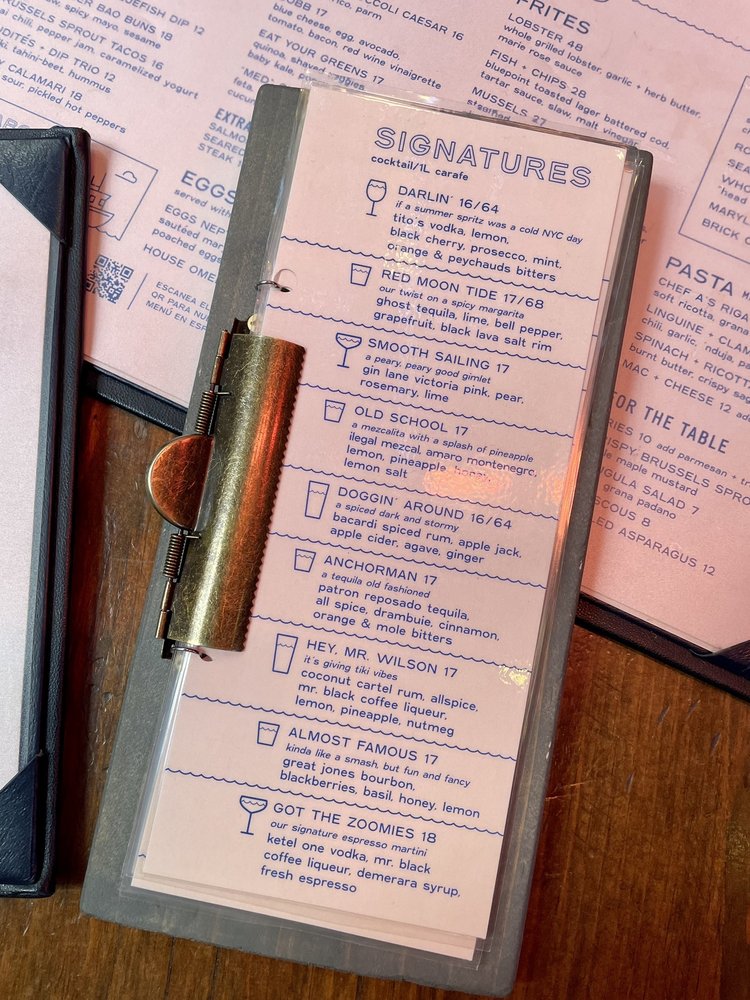 UEFISH DIP 12
ER BAO BUNS 18
slaw, spicy mayo, sesame
BRUSSELS SPROUT TACOS 16
chili, pepper jam, caramelized yogurt
CRUDITÉS + DIP TRIO 12
tahini-beet, hummus
CALAMARI 18
sour, pickled hot peppers
parm
BROCCOLI CAESAR 16
COBB 17
blue cheese, egg, avocado,
tomato, bacon, red wine vinaigrette
EAT YOUR GREENS 17
quinoa, shaved veggies
baby kale,
feta,
EXTRA
SALMO
SEARED
STEAK
EGGS
served with
EGGS NEP
sautéed mar
poached eggs
HOUSE OME
ESCANEA EL
OR PARA NU
MENÚ EN ESP
FRITES
LOBSTER 48
whole grilled lobster, garlic + herb butter,
marie rose sauce
FISH + CHIPS 28
bluepoint toasted lager battered cod,
tartar sauce, slaw, malt vinegar
MUSSELS 27
steamed
MARYL
BRICK
PASTA
CHEF A'S RIGA
soft ricotta, grana
LINGUINE + CLAM
chili, garlic, 'nduja, pa
SPINACH + RICOTT
burnt butter, crispy sag
MAC + CHEESE 12
FOR THE TABLE
FRIES 10 add parmesan + tr
CRISPY BRUSSELS SPRO
maple mustard
ARUGULA SALAD 7
grana padano
COUSCOUS 8
ASPARAGUS 12
SIGNATURES
cocktail/1L carafe
DARLIN' 16/64
if a summer spritz was a cold NYC day
tito's vodka, lemon,
black cherry, prosecco, mint,
orange & peychauds bitters
RED MOON TIDE 17/68
our twist on a spicy margarita
ghost tequila, lime, bell pepper,
grapefruit, black lava salt rim
SMOOTH SAILING 17
a peary, peary good gimlet
gin lane victoria pink, pear,
rosemary, lime
OLD SCHOOL 17
a mezcalita with a splash of pineapple
ilegal mezcal, amaro montenegro,
lemon, pineapple, honey,
lemon salt
DOGGIN' AROUND 16/64
a spiced dark and stormy
bacardi spiced rum, apple jack,
apple cider, agave, ginger
ANCHORMAN 17
a tequila old fashioned
patron reposado tequila,
all spice, drambuie, cinnamon,
orange & mole bitters
HEY, MR. WILSON 17
it's giving tiki vibes
coconut cartel rum, allspice,
mr. black coffee liqueur,
lemon, pineapple, nutmeg
ALMOST FAMOUS 17
kinda like a smash, but fun and fancy
great jones bourbon,
blackberries, basil, honey, lemon
GOT THE ZOOMIES 18
our signature espresso martini
ketel one vodka, mr. black
coffee liqueur, demerara syrup,
fresh espresso